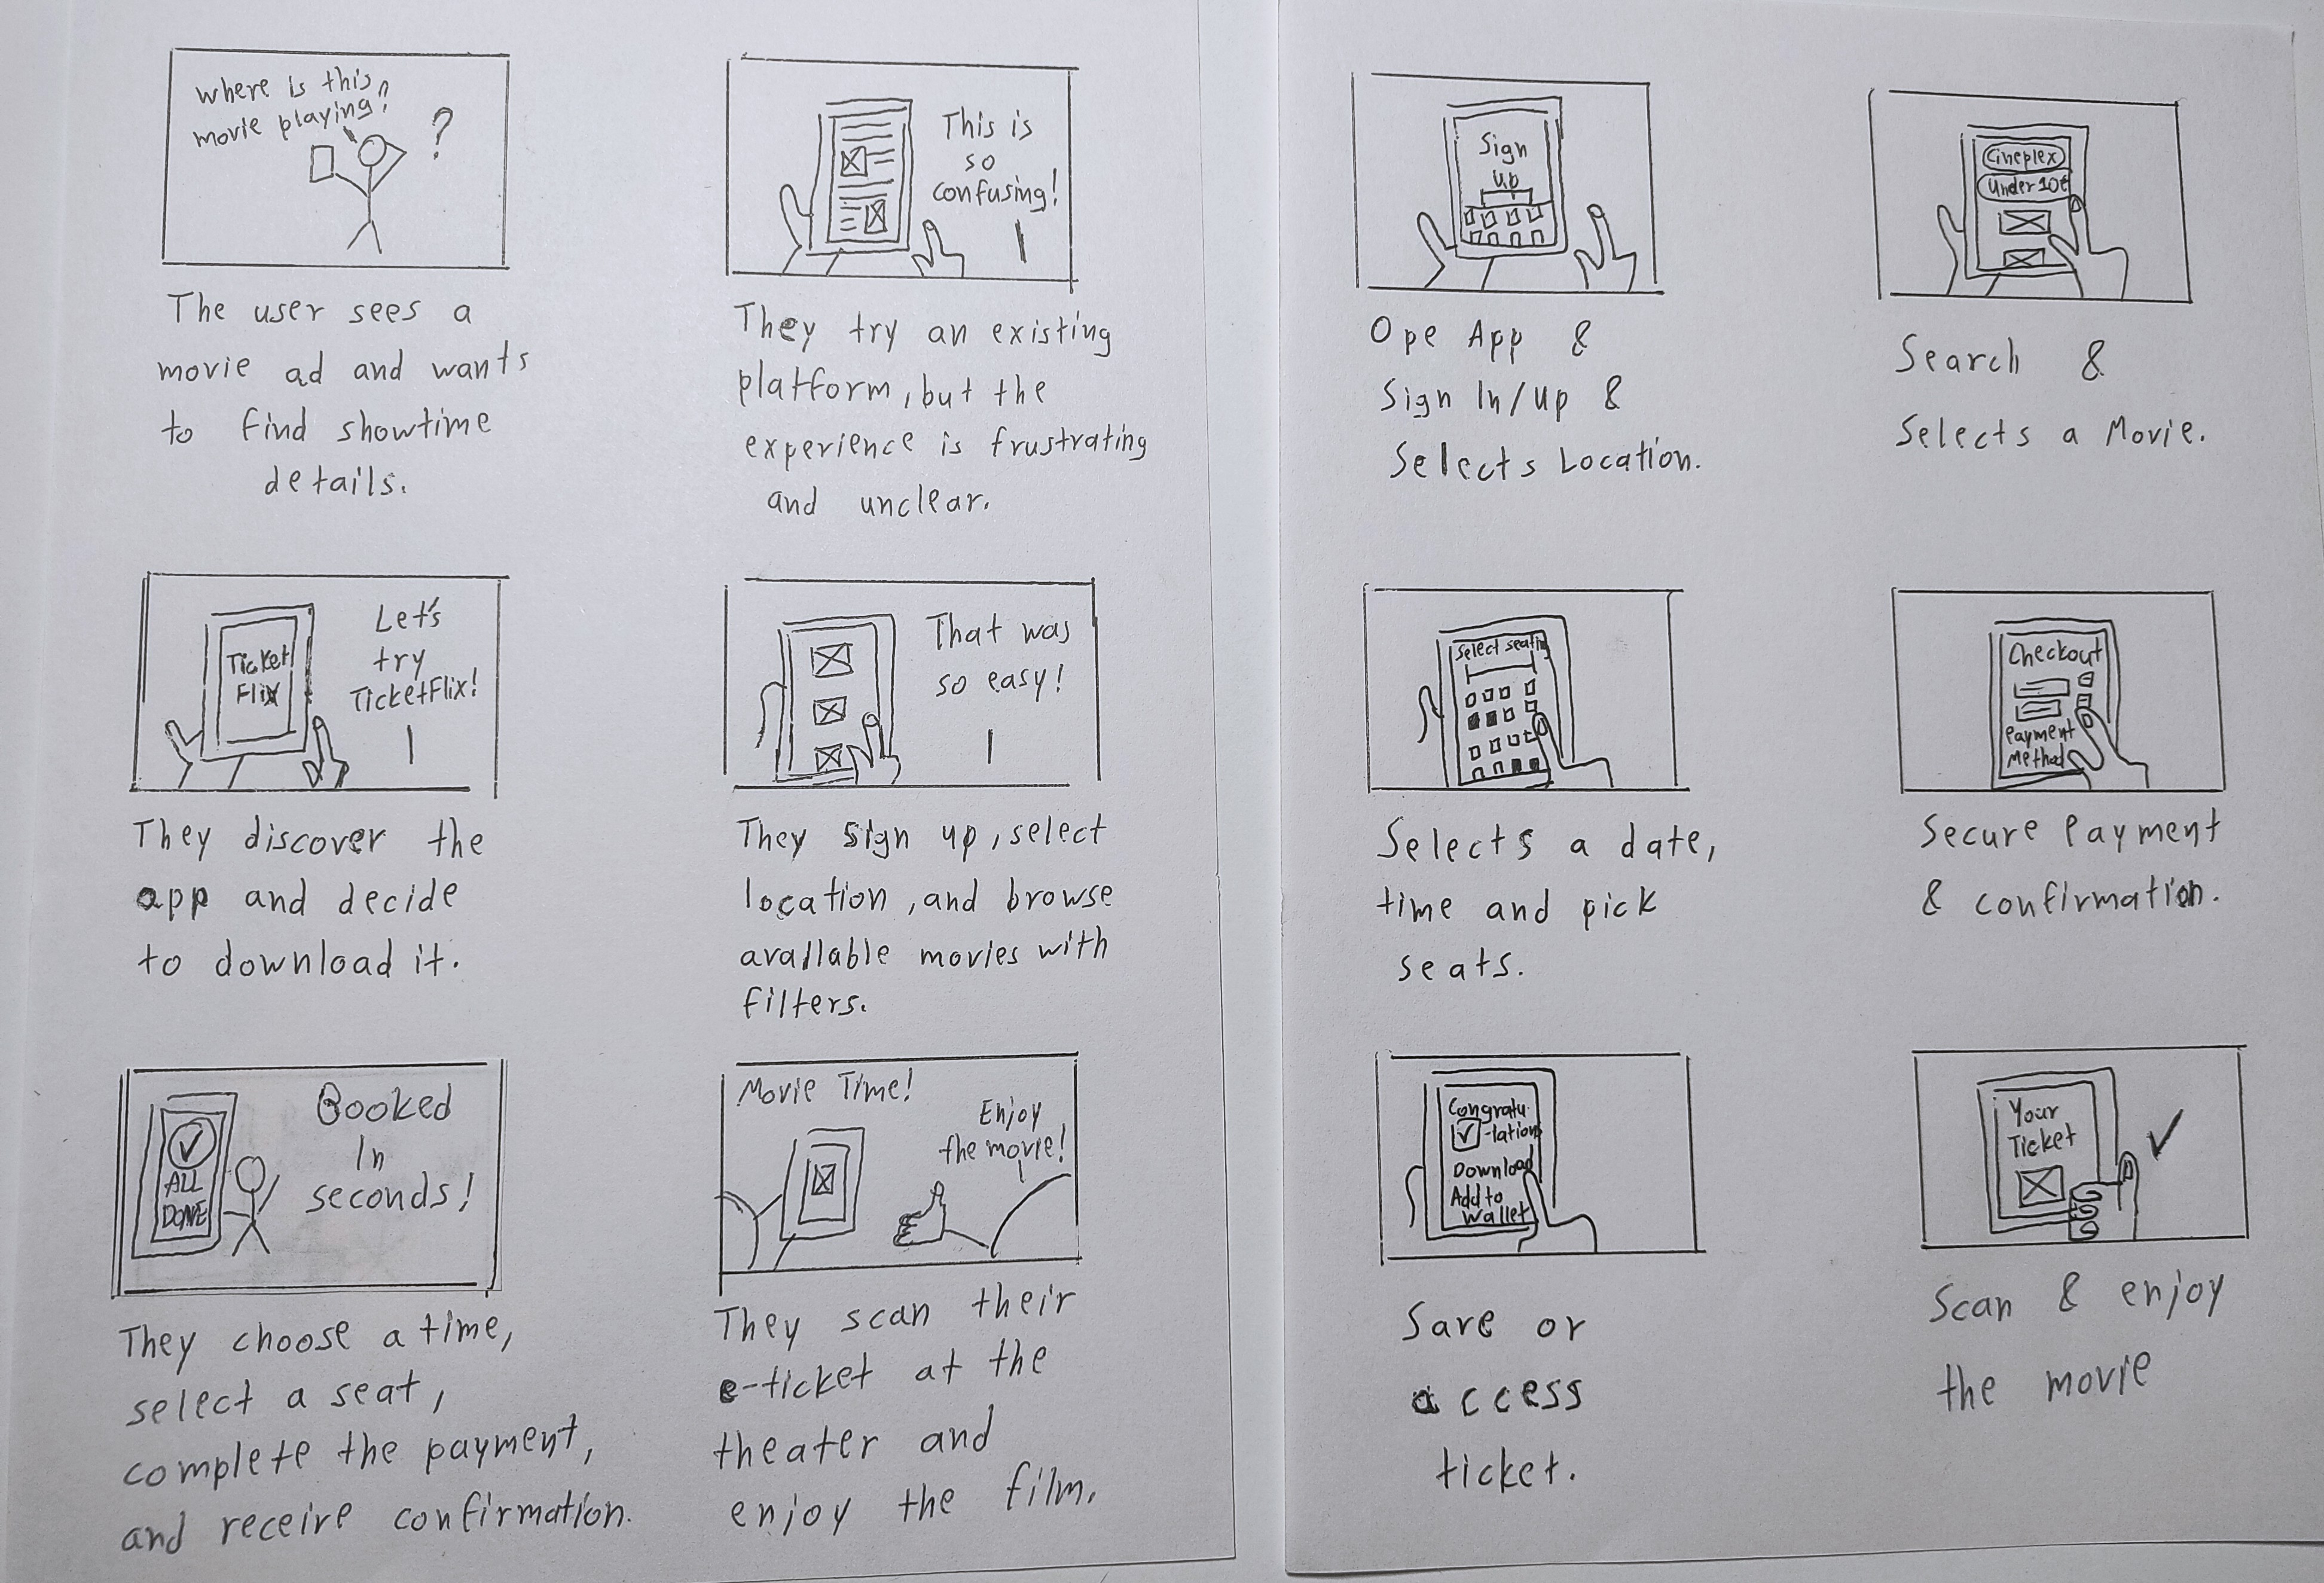 Where is this
movie playing?
?
The user sees a
movie ad and wants
to find showtime
details.
This is
so
confusing!
They try an existing
platform, but the
experience is frustrating
and unclear.
Ticket
Flix
Let's
try
TicketFlix!
They discover the
app and decide
to download it.
That was
so easy!
They sign up, select
location, and browse
available movies with
filters.
ALL
DONE
Booked
In
seconds!
They choose a time,
select a seat,
complete the payment,
and receive confirmation.
Movie Time!
Enjoy
the movie!
They scan their
e-ticket at the
theater and
enjoy the film.
Sign
Up
Ope App &
Sign In/Up &
Selects Location.
Cineplex
Under 10€
Search &
Selects a Movie.
Select seating
Selects a date,
time and pick
seats.
Checkout
Payment
Method
Secure Payment
& confirmation.
Congratu-
-lation
Download
Add to
Wallet
Save or
access
ticket.
Your
Ticket
Scan & enjoy
the movie